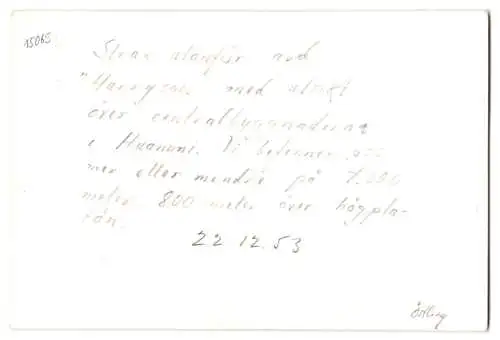 15065
Strax utanför and
"Harrysson med utsikt
över centralbyggnaderna
i Huanuni. Vi befinner oss
mer eller mindre på 4.800
meter 800 meter över högpla-
tån.
22 12.53
Östling